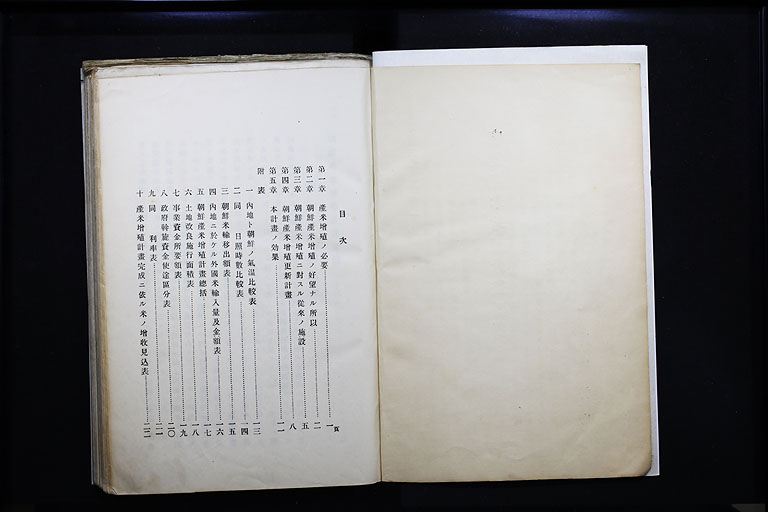 目次
頁
第一章 產米增殖ノ必要……一
第二章 朝鮮產米增殖ノ好望ナル所以……二
第三章 朝鮮產米增殖ニ對スル從來ノ施設……五
第四章 朝鮮產米增殖更新計畫……八
第五章 本計畫ノ効果……一一
附表
一 內地ト朝鮮ノ氣溫比較表……一三
二 同 日照時數比較表……一四
三 朝鮮米輸移出額表……一五
四 內地ニ於ケル外國米輸入量及金額表……一六
五 朝鮮產米增殖計畫總括……一七
六 土地改良施行面積表……一八
七 事業資金所要額表……一九
八 政府斡旋資金使途區分表……二〇
九 同 利率表……二一
十 產米增殖計畫完成ニ依ル米ノ增收見込表……二二